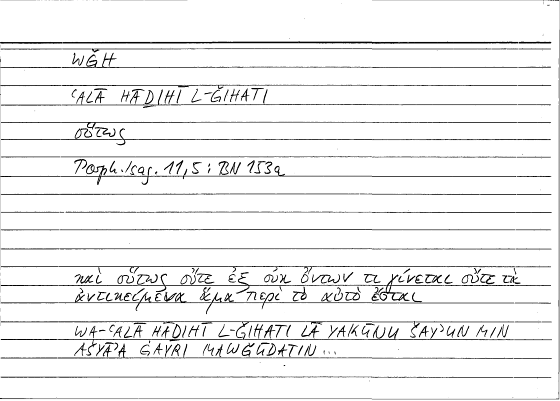 WǦH
ʿALĀ HĀḎIHĪ L-ǦIHATI
οὕτως
Porph. Isag. 11,5; BN 153a
καὶ οὕτως οὔτε ἐξ οὐκ ὄντων τι γίνεται οὔτε τὰ
ἀντικείμενα ἅμα περὶ τὸ αὐτὸ ἔσται
WA-ʿALĀ HĀḎIHĪ L-ǦIHATI LĀ YAKŪNU ŠAYʾUN MIN
AŠYĀʾA ĠAYRI MAWǦŪDATIN ...